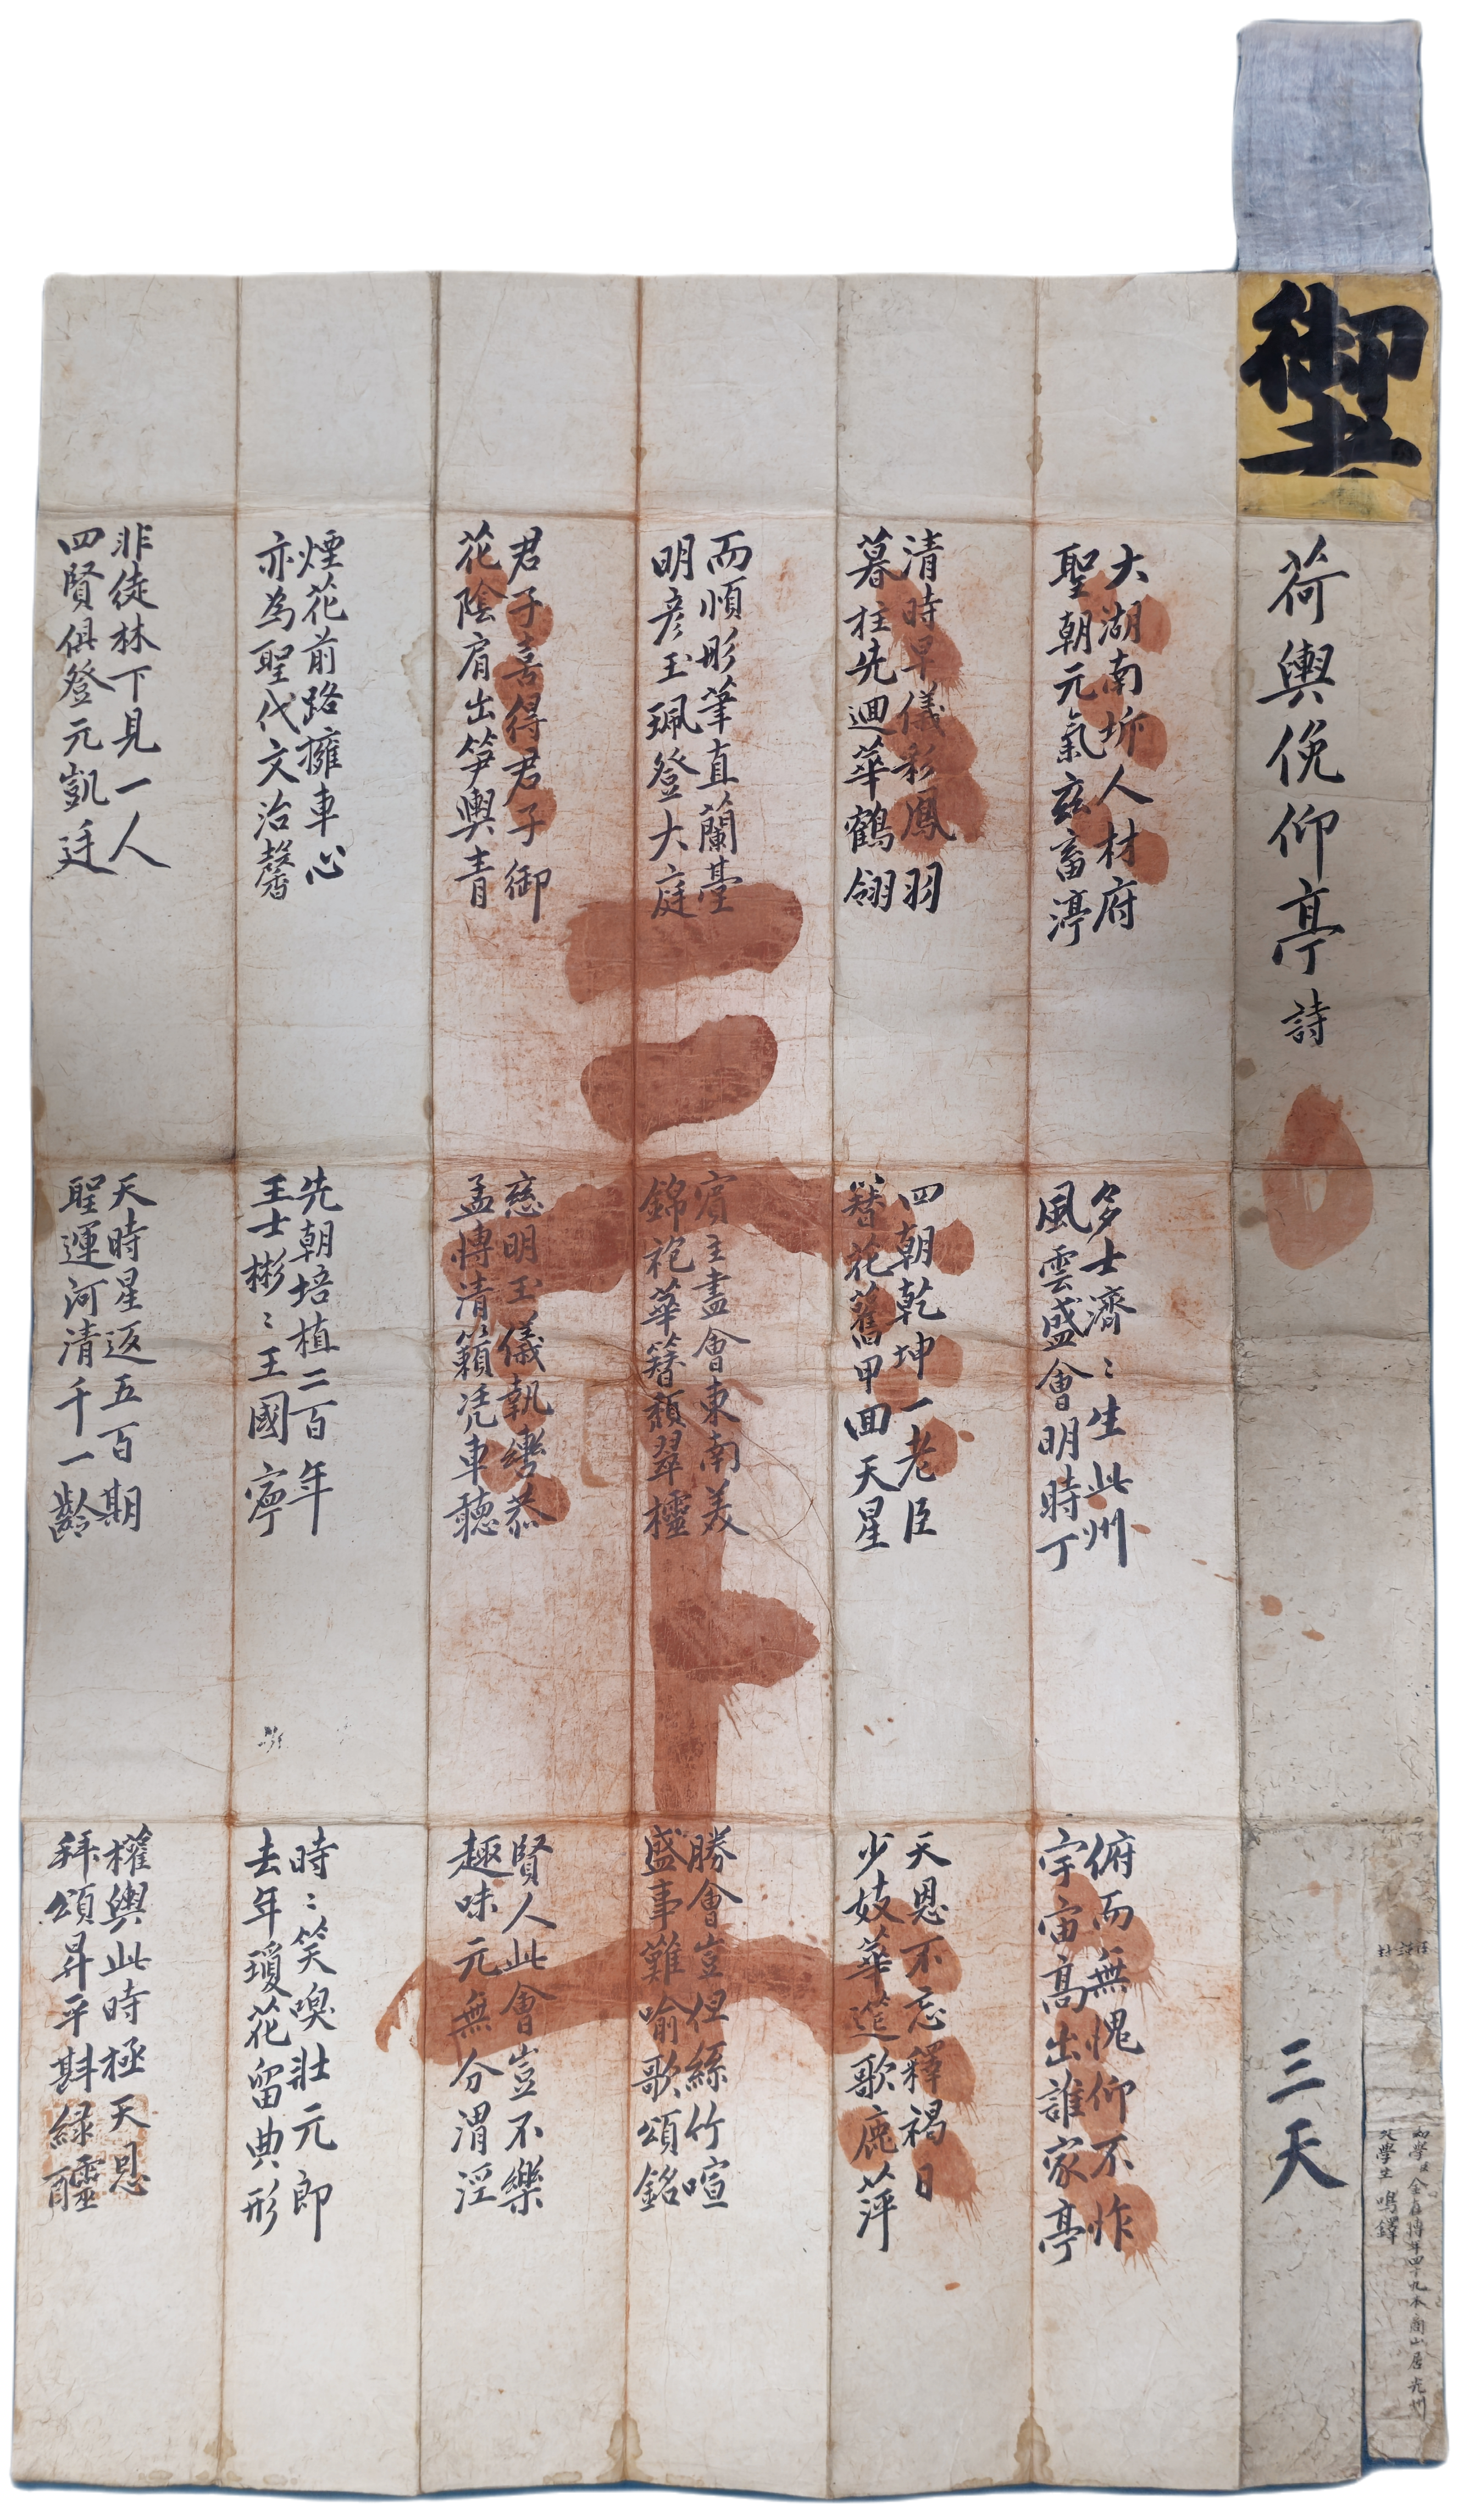 荷輿俛仰亭詩
三天
大湖南圻人材府
聖朝元氣玆畜渟
多士濟〻生此州
風雲盛會明時丁
俯而無愧仰不怍
宇宙高出誰家亭
清時早儀彩鳳羽
暮柱先迴華鶴翎
四朝乾坤一老臣
簪花舊甲回天星
天恩不忘釋褐日
少妓華筵歌鹿萍
而順彤筆直蘭臺
明彦玉珮登大庭
賓主盡會東南美
錦袍華簪顏翠櫺
勝會豈但絲竹喧
盛事難喻歌頌銘
君子喜得君子御
花陰肩出笋輿青
慈明玉儀執轡恭
孟博清籟凭車聽
賢人此會豈不樂
趣味元無分渭涇
煙花前路擁車心
亦為聖代文治馨
先朝培植二百年
王士彬〻王國寧
時〻笑喚壯元郎
去年瓊花留典形
非徒林下見一人
四賢俱登元凱廷
天時星返五百期
聖運河清千一齡
權輿此時極天恩
拜頌昇平斟綠醽
三上
年四十九本商山居光州
學生 鳴鐸